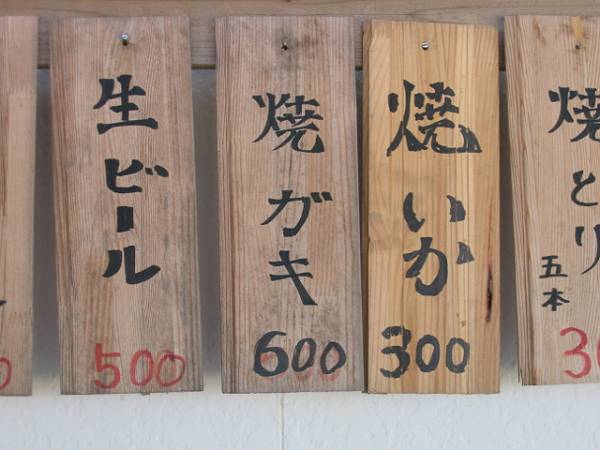 生ビール
500
焼ガキ
600
焼いか
300
焼とり
五本